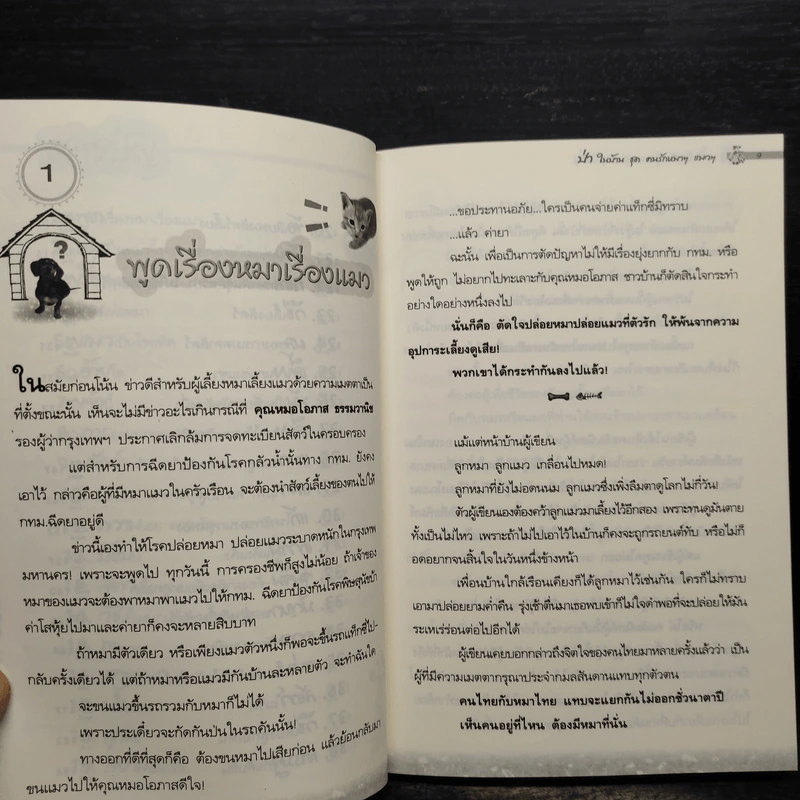 1
?
พูดเรื่องหมาเรื่องแมว
ในสมัยก่อนโน้น ข่าวดีสำหรับผู้เลี้ยงหมาเลี้ยงแมวด้วยความเมตตาเป็น
ที่ตั้งขณะนั้น เห็นจะไม่มีข่าวอะไรเกินกรณีที่ คุณหมอโอภาส ธรรมวานิช
รองผู้ว่ากรุงเทพฯ ประกาศเลิกล้มการจดทะเบียนสัตว์ในครอบครอง
แต่สำหรับการฉีดยาป้องกันโรคกลัวน้ำนั้นทาง กทม. ยังคง
เอาไว้ กล่าวคือผู้ที่มีหมาแมวในครัวเรือน จะต้องนำสัตว์เลี้ยงของตนไปให้
กทม.ฉีดยาอยู่ดี
ข่าวนี้เองทำให้โรคปล่อยหมา ปล่อยแมวระบาดหนักในกรุงเทพ
มหานคร! เพราะจะพูดไป ทุกวันนี้ การครองชีพก็สูงไม่น้อย ถ้าเจ้าของ
หมาของแมวจะต้องพาหมาพาแมวไปให้กทม. ฉีดยาป้องกันโรคพิษสุนัขบ้า
ค่าโสหุ้ยไปมาและค่ายาก็คงจะหลายสิบบาท
ถ้าหมามีตัวเดียว หรือเพียงแมวตัวหนึ่งก็พอจะขึ้นรถแท็กซี่ไป-
กลับครั้งเดียวได้ แต่ถ้าหมาหรือแมวมีกันบ้านละหลายตัว จะทำฉันใด
จะขนแมวขึ้นรถรวมกับหมาก็ไม่ได้
เพราะประเดี๋ยวจะกัดกันป่นในรถคันนั้น!
ทางออกที่ดีที่สุดก็คือ ต้องขนหมาไปเสียก่อน แล้วย้อนกลับมา
ขนแมวไปให้คุณหมอโอภาสดีใจ!
ป่า ในบ้าน ชุด คนรักหมาๆ แมวๆ 9
...ขอประทานอภัย...ใครเป็นคนจ่ายค่าแท็กซี่มิทราบ
...แล้ว ค่ายา
ฉะนั้น เพื่อเป็นการตัดปัญหาไม่ให้มีเรื่องยุ่งยากกับ กทม. หรือ
พูดให้ถูก ไม่อยากไปทะเลาะกับคุณหมอโอภาส ชาวบ้านก็ตัดสินใจกระทำ
อย่างใดอย่างหนึ่งลงไป
นั่นก็คือ ตัดใจปล่อยหมาปล่อยแมวที่ตัวรัก ให้พ้นจากความ
อุปการะเลี้ยงดูเสีย!
พวกเขาได้กระทำกันลงไปแล้ว!
แม้แต่หน้าบ้านผู้เขียน
ลูกหมา ลูกแมว เกลื่อนไปหมด!
ลูกหมาที่ยังไม่อดนนม ลูกแมวซึ่งเพิ่งลืมตาดูโลกไม่กี่วัน!
ตัวผู้เขียนเองต้องคว้าลูกแมวมาเลี้ยงไว้อีกสอง เพราะทนดูมันตาย
ทั้งเป็นไม่ไหว เพราะถ้าไม่ไปเอาไว้ในบ้านก็คงจะถูกรถยนต์ทับ หรือไม่ก็
อดอยากจนสิ้นใจในวันหนึ่งข้างหน้า
เพื่อนบ้านใกล้เรือนเคียงก็ได้ลูกหมาไว้เช่นกัน ใครก็ไม่ทราบ
เอามาปล่อยยามค่ำคืน รุ่งเช้าตื่นมาเธอพบเข้าก็ไม่ใจดำพอที่จะปล่อยให้มัน
ระเหเร่ร่อนต่อไปอีกได้
ผู้เขียนเคยบอกกล่าวถึงจิตใจของคนไทยมาหลายครั้งแล้วว่า เป็น
ผู้ที่มีความเมตตากรุณาประจำกมลสันดานแทบทุกตัวตน
คนไทยกับหมาไทย แทบจะแยกกันไม่ออกชั่วนาตาปี
เห็นคนอยู่ที่ไหน ต้องมีหมาที่นั่น